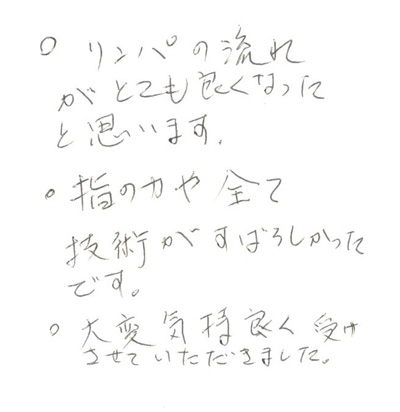 ○ リンパの流れ
がとても良くなった
と思います。
○ 指の力や全て
技術がすばらしかった
です。
○ 大変気持良く受け
させていただきました。